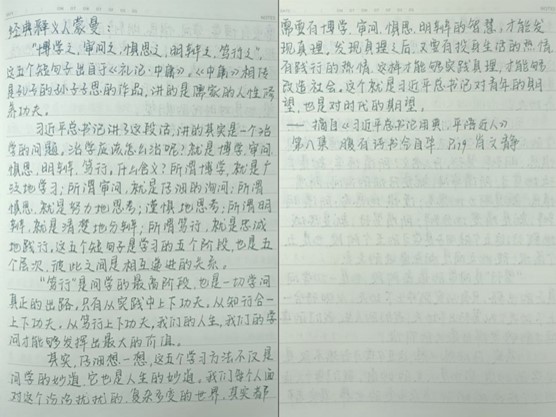 经典释义人蒙曼：
“博学之，审问之，慎思之，明辨之，笃行之”，
这五个短句子出自于《礼记·中庸》。《中庸》相传
是孔子的孙子子思的作品，讲的是儒家的人性修
养功夫。
习近平总书记讲了这段话，讲的其实是一个治
学的问题，治学应该怎么治呢？就是博学、审问、
慎思、明辨、笃行，什么含义？所谓博学，就是广
泛地学习；所谓审问，就是仔细的询问；所谓
慎思，就是努力地思考；谨慎地思考；所谓明
辨，就是清楚地分辨；所谓笃行，就是忠诚
地践行，这五个短句子是学习的五个阶段，也是五
个层次，彼此之间是相互递进的关系。
“笃行”是问学的最高阶段，也是一切学问
真正的出路，只有从实践中上下功夫，从知行合一
上下功夫，从笃行上下功夫，我们的人生，我们的学
问才能够发挥出最大的价值。
其实，仔细想一想，这五个学习方法不仅是
问学的妙道，它也是人生的妙道。我们每个人面
对这个纷纷扰扰的，复杂多变的世界，其实都
需要有博学、审问、慎思、明辨的智慧，才能发
现真理，发现真理之后，又要有投身生活的热情，
有践行的热情，这样才能够实践真理，才能够
改造社会，这个就是习近平总书记对青年的期
望，也是对时代的期望。
——摘自《习近平总书记用典，平语近人》
第八集 腹有诗书气自华 P29 肖文静